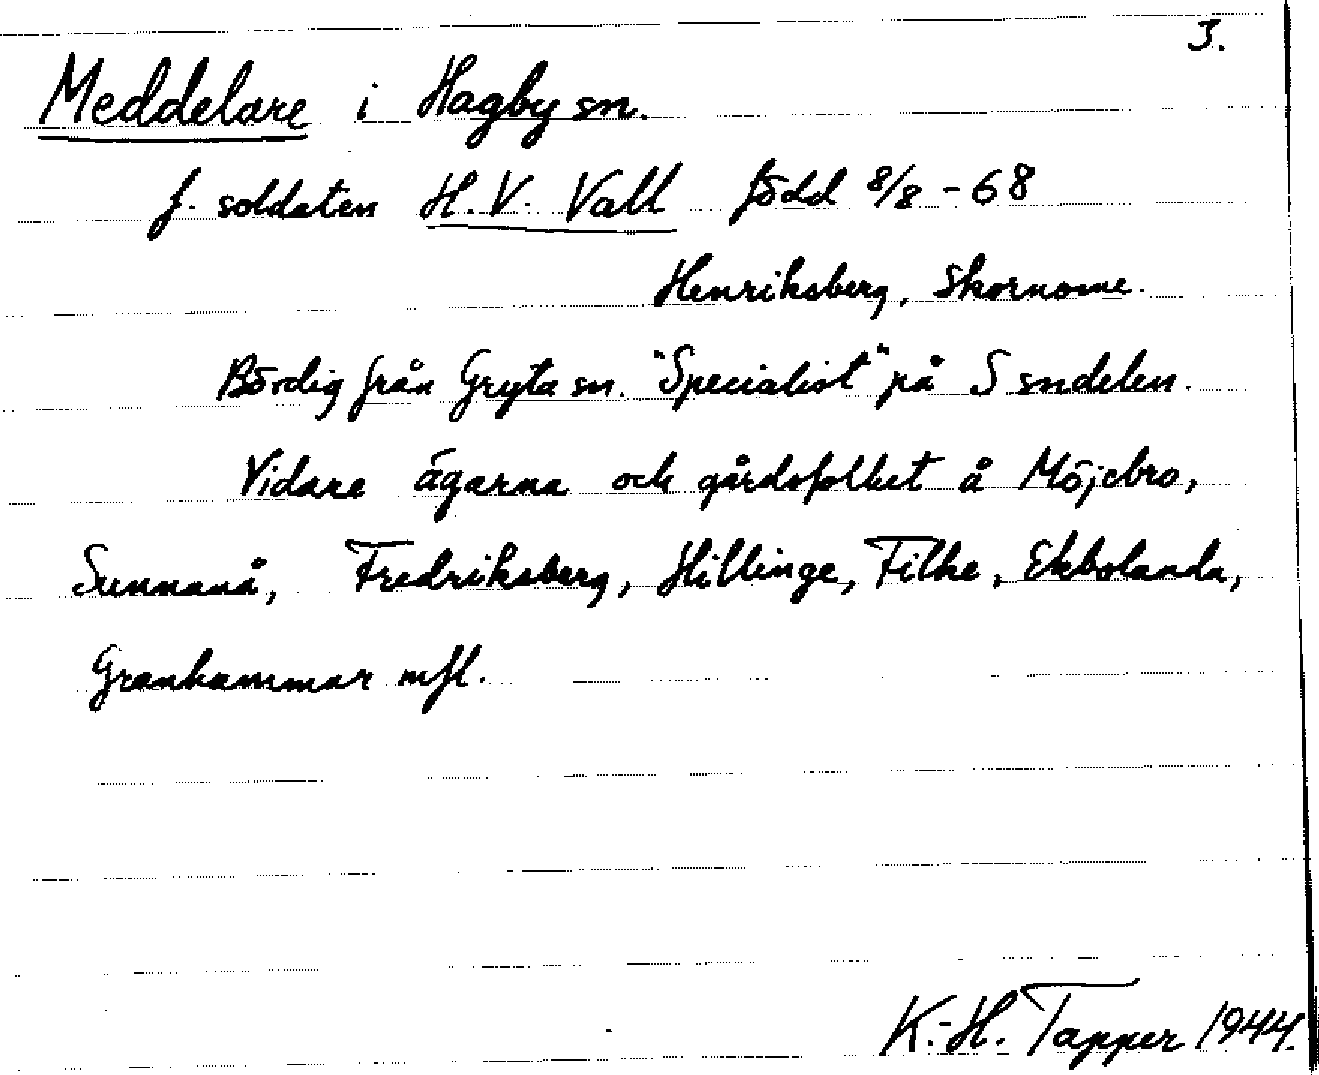 3.
Meddelare i Hagby sn.
f. soldaten H.V. Vall född 8/8 - 68
Henriksberg, Skornome.
Bördig från Gryta sn. "Specialist" på S sndelen.
Vidare ägarna och gårdsfolket å Möjebro,
Sunnanå, Fredriksberg, Hillinge, Filke, Ekbolanda,
Granhammar mfl.
K.-H. Tapper 1944.